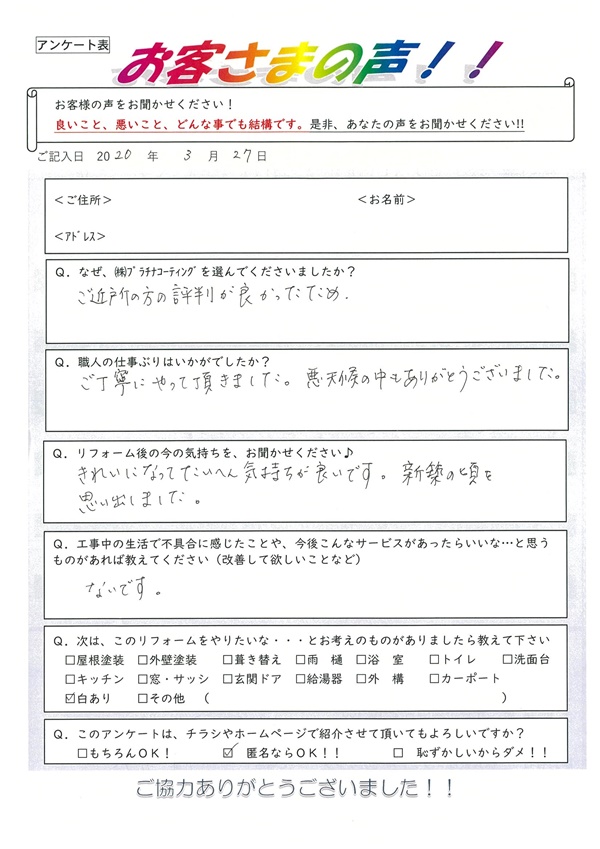 アンケート表
お客さまの声！！
お客様の声をお聞かせください！
良いこと、悪いこと、どんな事でも結構です。是非、あなたの声をお聞かせください!!
ご記入日 2020 年 3 月 27日
＜ご住所＞ ＜お名前＞
＜ｱﾄﾞﾚｽ＞
Ｑ．なぜ、㈱ﾌﾟﾗﾁﾅｺｰﾃｨﾝｸﾞを選んでくださいましたか？
ご近所の方の評判が良かったため．
Ｑ．職人の仕事ぶりはいかがでしたか？
ご丁寧にやって頂きました。悪天候の中もありがとうございました。
Ｑ．リフォーム後の今の気持ちを、お聞かせください♪
きれいになってたいへん気持ちが良いです。新築の頃を
思い出しました。
Ｑ．工事中の生活で不具合に感じたことや、今後こんなサービスがあったらいいな…と思う
ものがあれば教えてください（改善して欲しいことなど）
ないです。
Ｑ．次は、このリフォームをやりたいな・・・とお考えのものがありましたら教えて下さい
□屋根塗装 □外壁塗装 □葺き替え □雨 樋 □浴 室 □トイレ □洗面台
□キッチン □窓・サッシ □玄関ドア □給湯器 □外 構 □カーポート
☑白あり □その他 （ ）
Ｑ．このアンケートは、チラシやホームページで紹介させて頂いてもよろしいですか？
□もちろんＯＫ！ ☑ 匿名ならＯＫ！！ □ 恥ずかしいからダメ！！
ご協力ありがとうございました！！